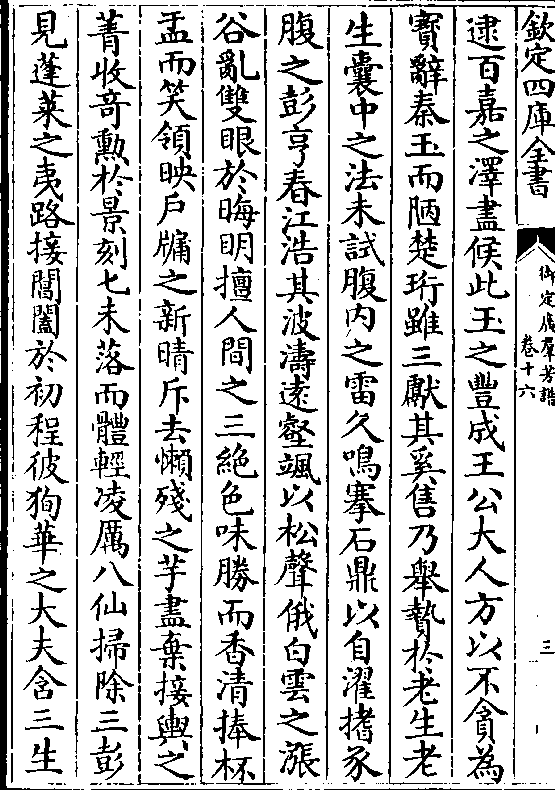 欽定四庫全書
御定廣羣芳譜
卷十六
三
逮百嘉之澤盡候此玉之豐成王公大人方以不貪為
寶辭秦玉而陋楚珩雖三獻其奚售乃舉贄於老生老
生囊中之法未試腹內之雷久鳴搴石鼎以自濯搘豕
腹之彭亨春江浩其波濤遠壑颯以松聲俄白雲之漲
谷亂雙眼於晦明擅人間之三絶色味勝而香清捧杯
盂而笑領映戶牖之新晴斥去懶殘之芋盡棄接輿之
菁收竒勲於景刻七未落而體輕凌厲八仙掃除三彭
見蓬萊之夷路接閶闔於初程彼狥華之大夫含三生